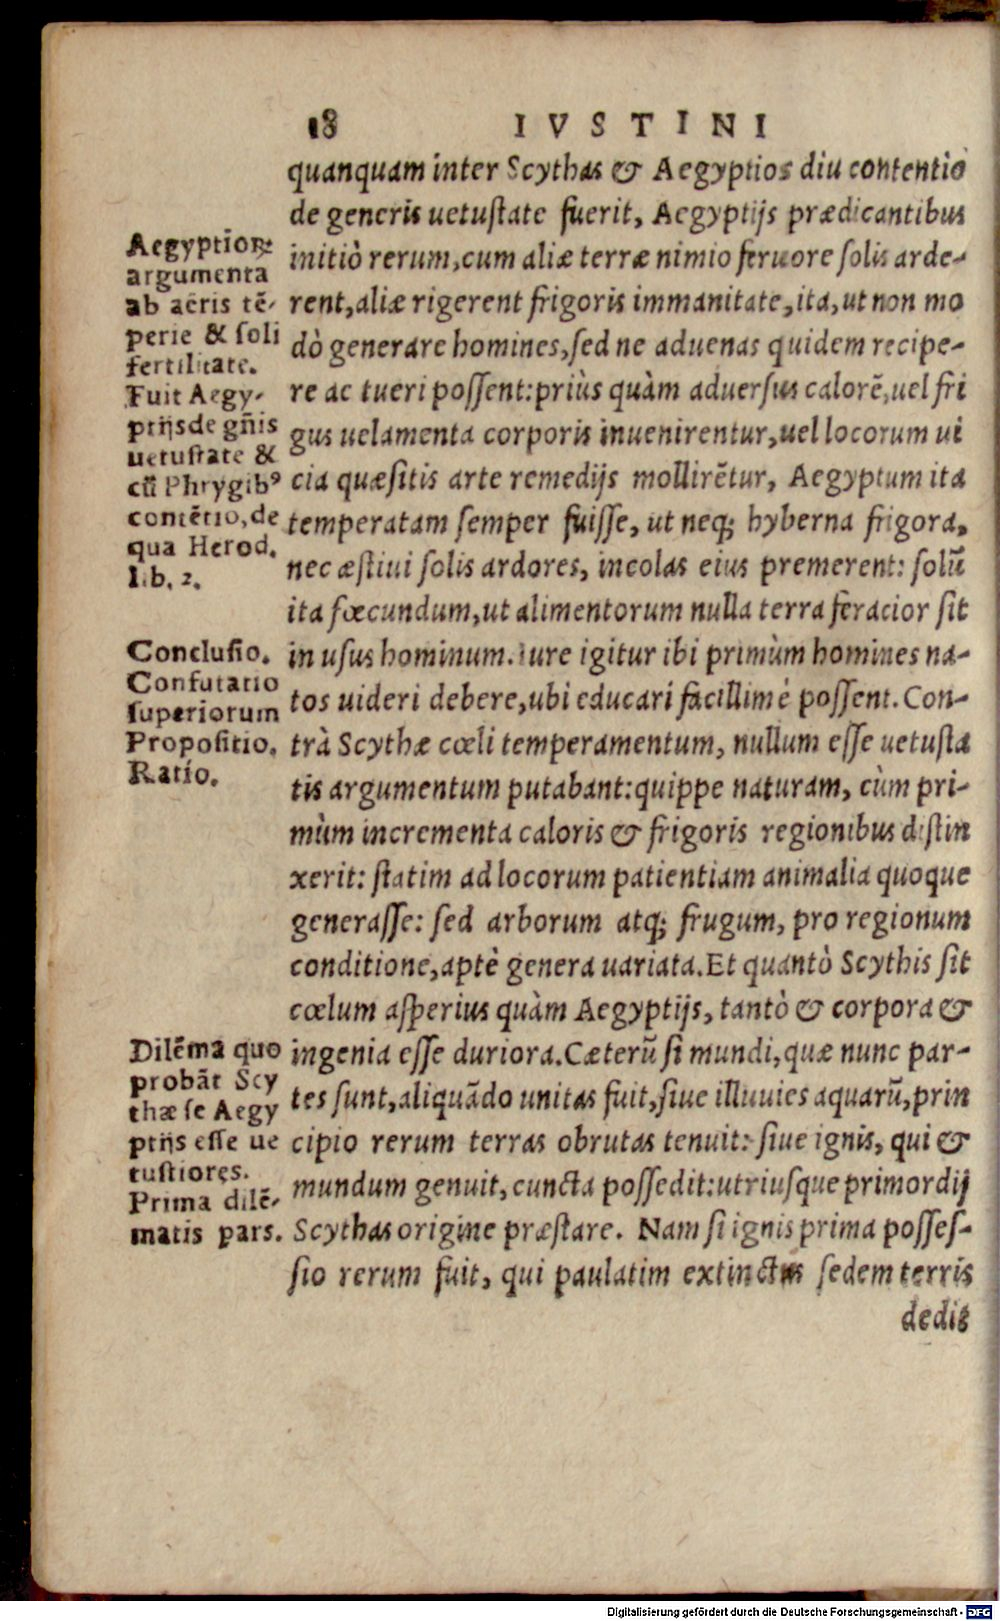 18 IVSTINI
quanquam inter Scythas & Aegyptios diu contentio
de generis uetuſtate fuerit, Aegyptijs prædicantibus
initiò rerum, cum aliæ terræ nimio feruore ſolis arde-
rent, aliæ rigerent frigoris immanitate, ita, ut non mo
dò generare homines, ſed ne aduenas quidem recipe-
re ac tueri poſſent: priùs quàm aduerſus calorē, uel fri
gus uelamenta corporis inuenirentur, uel locorum ui
cia quæſitis arte remedijs mollirētur, Aegyptum ita
temperatam ſemper fuiſſe, ut neq; hyberna frigora,
nec æſtiui ſolis ardores, incolas eius premerent: ſolū
ita fœcundum, ut alimentorum nulla terra feracior ſit
in uſus hominum. Iure igitur ibi primùm homines na-
tos uideri debere, ubi educari facillimè poſſent. Con-
trà Scythæ cœli temperamentum, nullum eſſe uetuſta
tis argumentum putabant: quippe naturam, cùm pri-
mùm incrementa caloris & frigoris regionibus diſtin
xerit: ſtatim ad locorum patientiam animalia quoque
generaſſe: ſed arborum atq; frugum, pro regionum
conditione, aptè genera uariata. Et quantò Scythis ſit
cœlum aſperius quàm Aegyptijs, tantò & corpora &
ingenia eſſe duriora. Cæterū ſi mundi, quæ nunc par-
tes ſunt, aliquādo unitas fuit, ſiue illuuies aquarū, prin
cipio rerum terras obrutas tenuit: ſiue ignis, qui &
mundum genuit, cuncta poſſedit: utriuſque primordij
Scythas origine præſtare. Nam ſi ignis prima poſſeſ-
ſio rerum fuit, qui paulatim extinctus ſedem terris
dedit
Aegyptiorꝝ
argumenta
ab aëris tē-
perie & ſoli
fertilitate.
Fuit Aegy-
ptijs de gn̄is
uetuſtate &
cū Phrygibꝰ
contētio, de
qua Herod.
lib. 2.
Concluſio.
Confutatio
ſuperiorum
Propoſitio.
Ratio.
Dilēma quo
probāt Scy
thæ ſe Aegy
ptijs eſſe ue
tuſtiores.
Prima dilē-
matis pars.
Digitalisierung gefördert durch die Deutsche Forschungsgemeinschaft - DFG